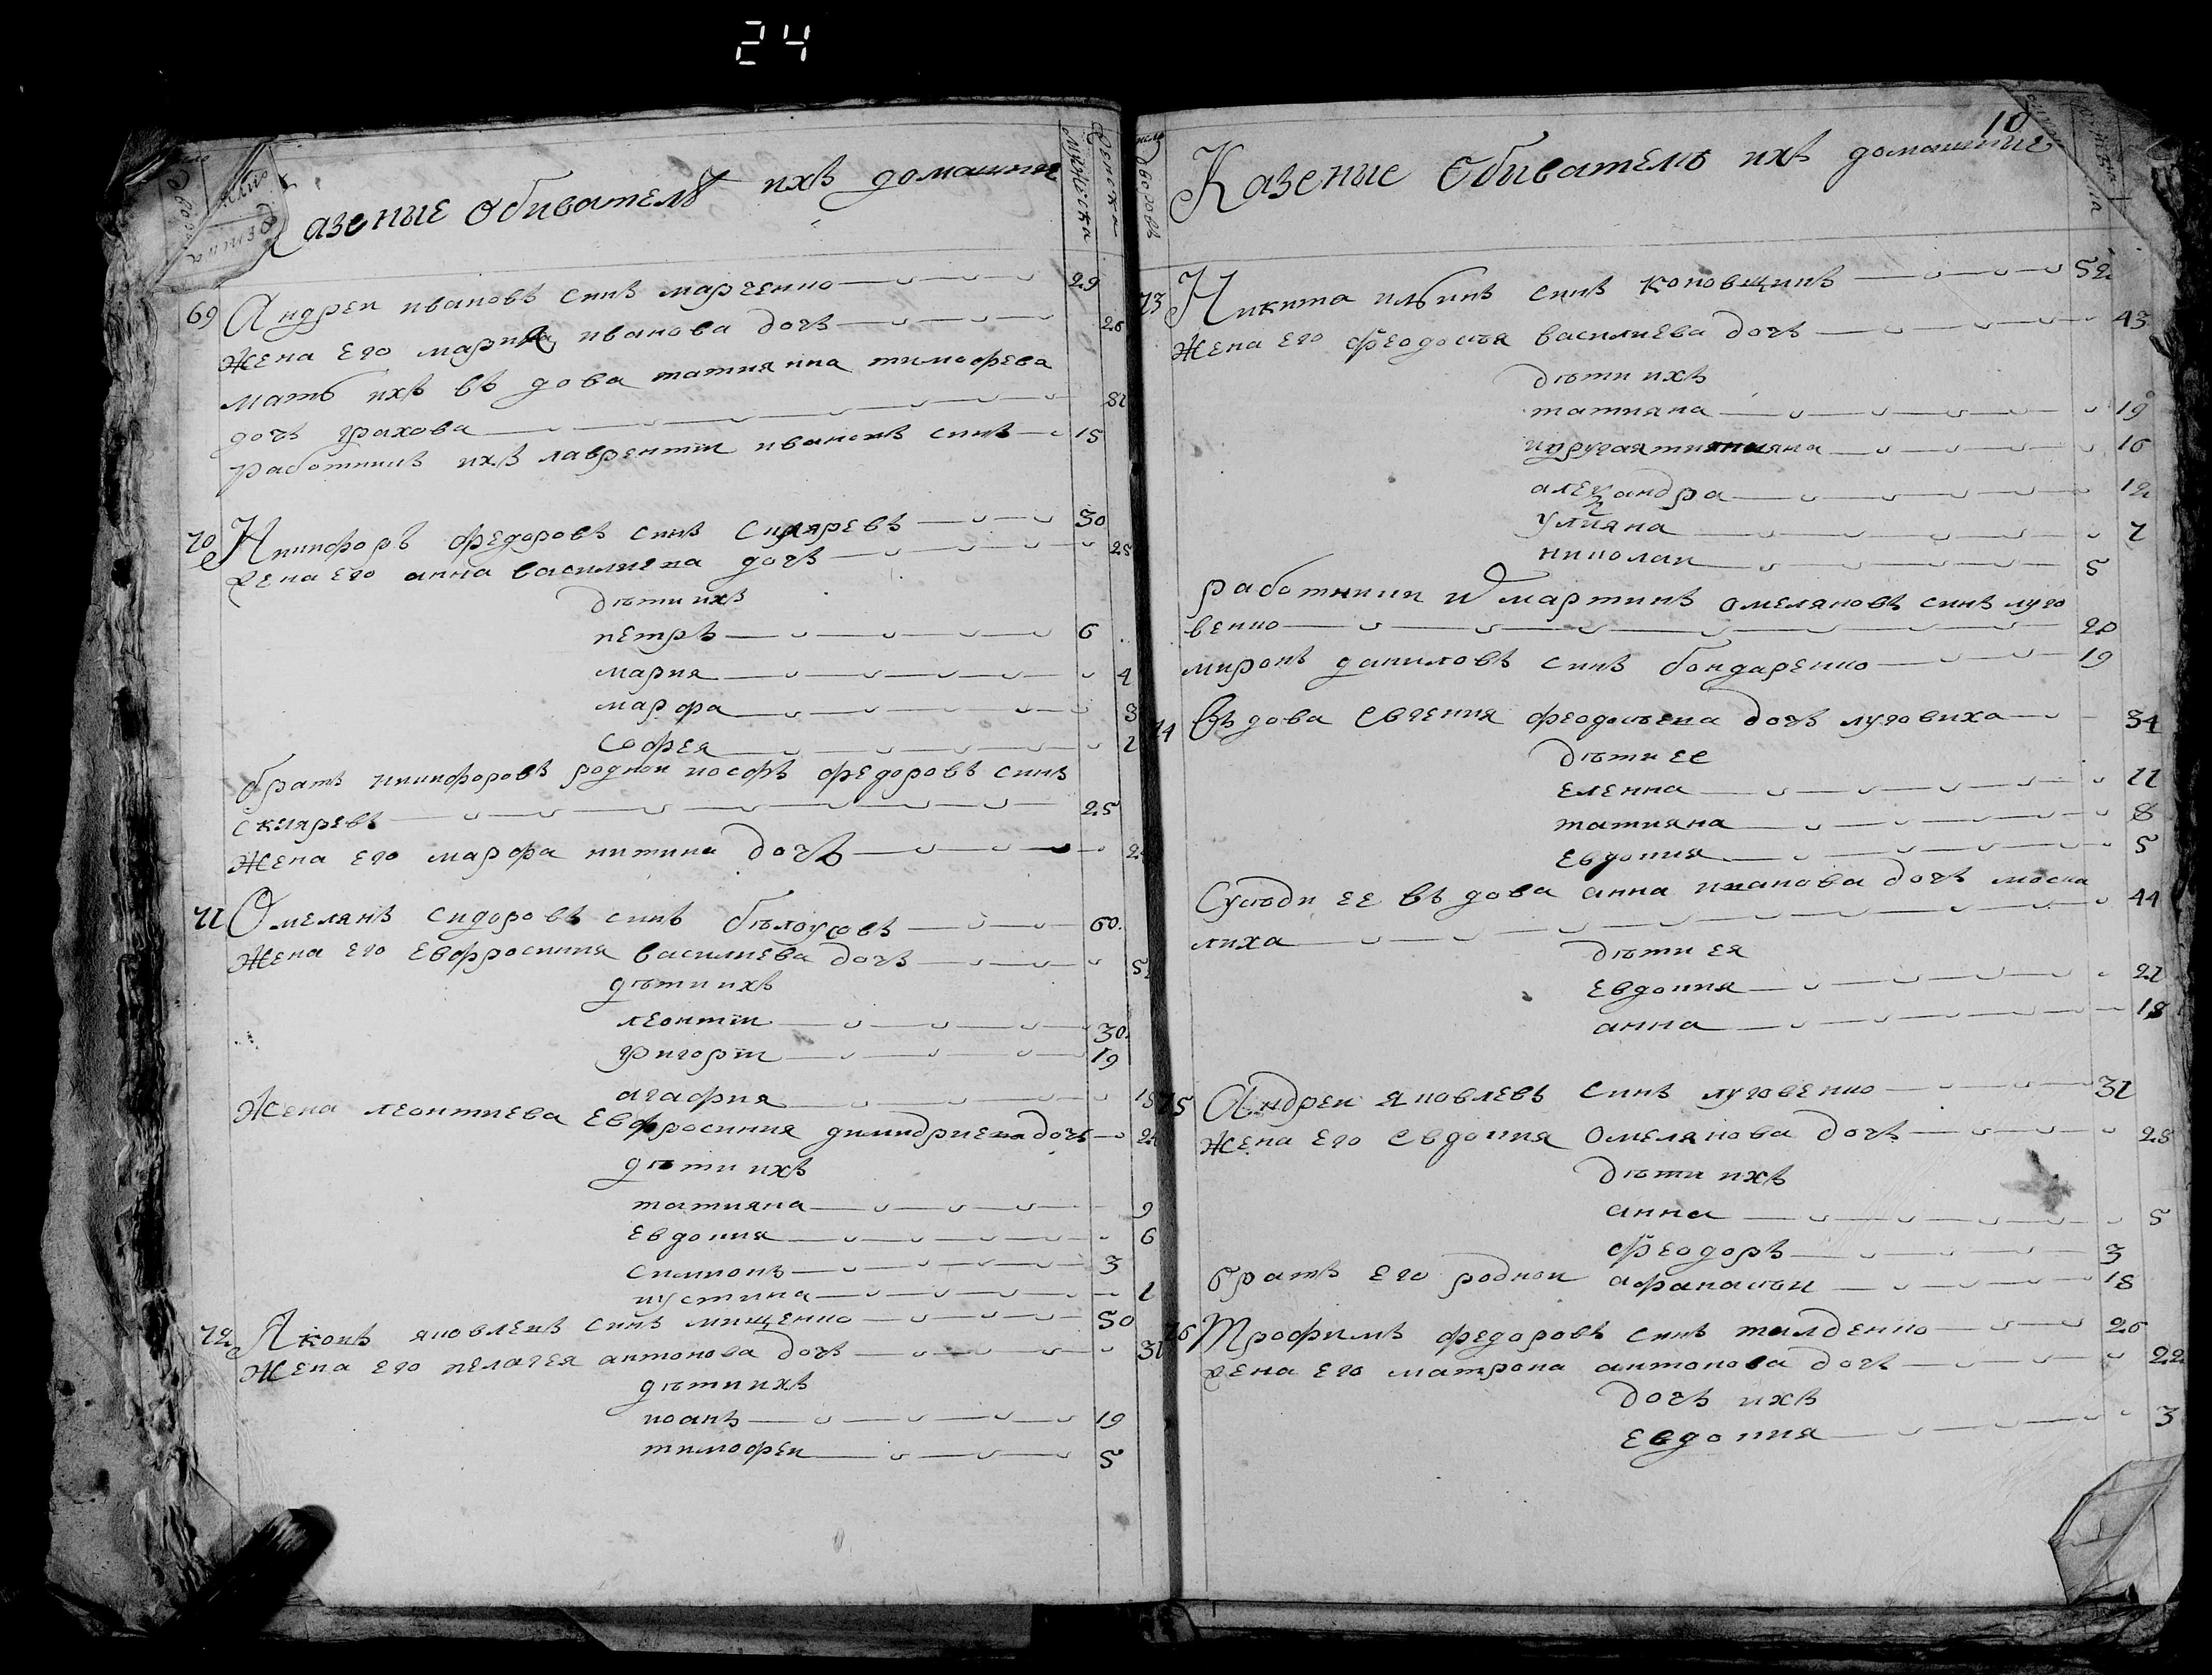 24
Казение обивателѣ ихъ домашни
мужеска
женска
69 Андреи ивановъ синъ марченко 29
жена его мария иванова дочъ 26
мать ихъ въдова татияна тимофеева
дочъ грахова 81
работникъ ихъ лаврентiи ивановъ синъ 15
70 Никифоръ федоровъ синъ скляревъ 30
жена его анна василиева дочъ 25
дѣти ихъ
петръ 6
мария 4
марфа 3
софея 1
братъ никифоровъ родной иосифъ федоровъ синъ
скляревъ 25
жена его марфа никитина дочъ 2
71 Омелянъ сидоровъ синъ бѣлоусовъ 60
жена его евфросиния василиева дочъ 5
дѣти ихъ
леонтiи 30
григорiи 19
агафия 15
жена леонтиева евфросиния димидриева дочъ 2
дѣти ихъ
татияна 9
евдокия 6
симионъ 3
иустина 1
72 Яковъ яковлевъ синъ мищенко 50
жена его пелагея антонова дочъ 31
дѣти ихъ
иоанъ 19
тимофеи 5
10
Казение обивателѣ ихъ домашние
число дворовъ
73 Никита ильинъ синъ коновщинъ 52
жена его феодосѣя василиева дочъ 43
дѣти ихъ
татияна 19
и другая татияна 16
александра 12
улияна 7
николаи 5
работники и мартинъ омеляновъ синъ луго
венко 20
миронъ даниловъ синъ бондаренко 19
74 Въдова евгения феодосѣева дочъ луговиха 34
дѣти ее
еленна 11
татияна 8
евдокия 5
Сусѣди ее въдова анна иванова дочъ моска
лиха 44
дѣти ея
евдокия 21
анна 18
75 Андреи яковлевъ синъ луговенко 31
жена его евдокия омелянова дочъ 28
дѣти ихъ
анна 5
феодоръ 3
братъ его родной афанасѣи 18
76 Трофимъ федоровъ синъ толденко 26
жена его матрона антонова дочъ 22
дочъ ихъ
евдокия 3